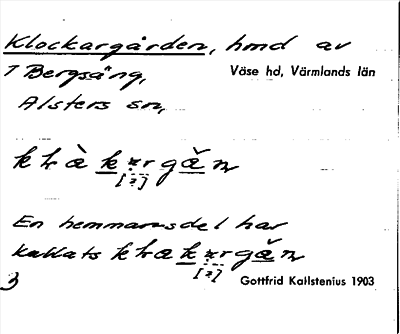 Klockargården, hmd av
1 Bergsäng,
Väse hd, Värmlands län
Alsters sn,
[?]
En hemmansdel har
kallats
[?]
3
Gottfrid Kallstenius 1903